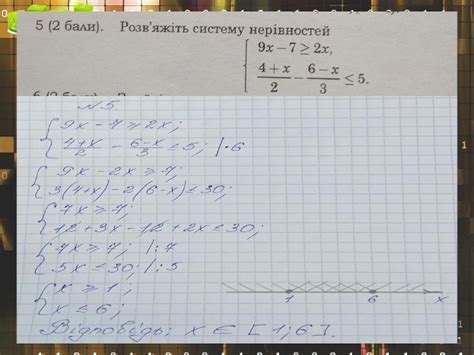 5 (2 бали). Розв'яжіть систему нерівностей
{ 9x − 7 ≥ 2x,
(4 + x)/2 − (6 − x)/3 ≤ 5.
N 5.
{ 9x − 7 ≥ 2x;
(4+x)/2 − (6−x)/3 ≤ 5; |·6
{ 9x − 2x ≥ 7;
3(4+x) − 2(6−x) ≤ 30;
{ 7x ≥ 7;
12 + 3x − 12 + 2x ≤ 30;
{ 7x ≥ 7; |:7
5x ≤ 30; |:5
{ x ≥ 1;
x ≤ 6;
1 6 x
Відповідь: x ∈ [1; 6].